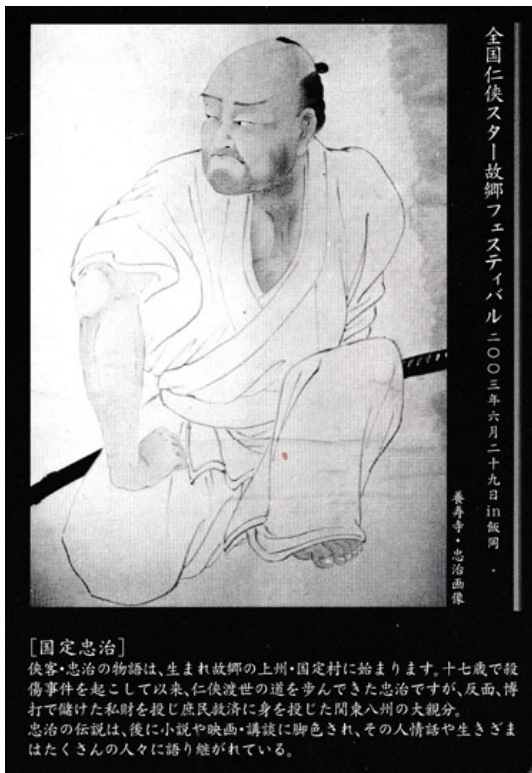 全国仁侠スター故郷フェスティバル 二〇〇三年六月二十九日in飯岡
養寿寺・忠治画像
[国定忠治]
侠客・忠治の物語は、生まれ故郷の上州・国定村に始まります。十七歳で殺
傷事件を起こして以来、仁侠渡世の道を歩んできた忠治ですが、反面、博
打で儲けた私財を投じ庶民救済に身を投じた関東八州の大親分。
忠治の伝説は、後に小説や映画・講談に脚色され、その人情話や生きざま
はたくさんの人々に語り継がれている。